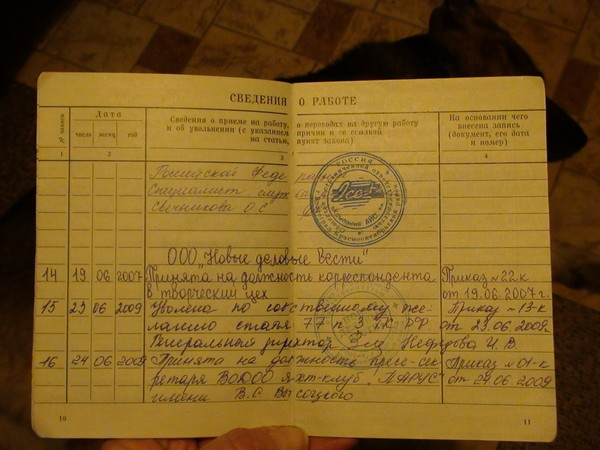 СВЕДЕНИЯ О РАБОТЕ
№ записи
Дата
число месяц год
Сведения о приеме на работу, о переводах на другую работу
и об увольнении (с указанием причин и со ссылкой
на статью, пункт закона)
На основании чего
внесена запись
(документ, его дата
и номер)
1 2 3 4
Российской Феде
Специалист служ
Свечникова О.С
РОССИЯ
ООО "Новые деловые Вести"
14 19 06 2007 Принята на должность корреспондента Приказ №22к
в творческий цех от 19.06.2007г.
15 23 06 2009 Уволена по собственному же- Приказ №13-к
ланию статья 77 п 3 ТК РФ от 23.06.2009
Генеральный директор И.В.
16 24 06 2009 Принята на должность пресс-сек- Приказ №01-к
ретаря ВОЮОО яхт-клуб "ПАРУС" от 24.06.2009
имени В.С Высоцкого
10 11